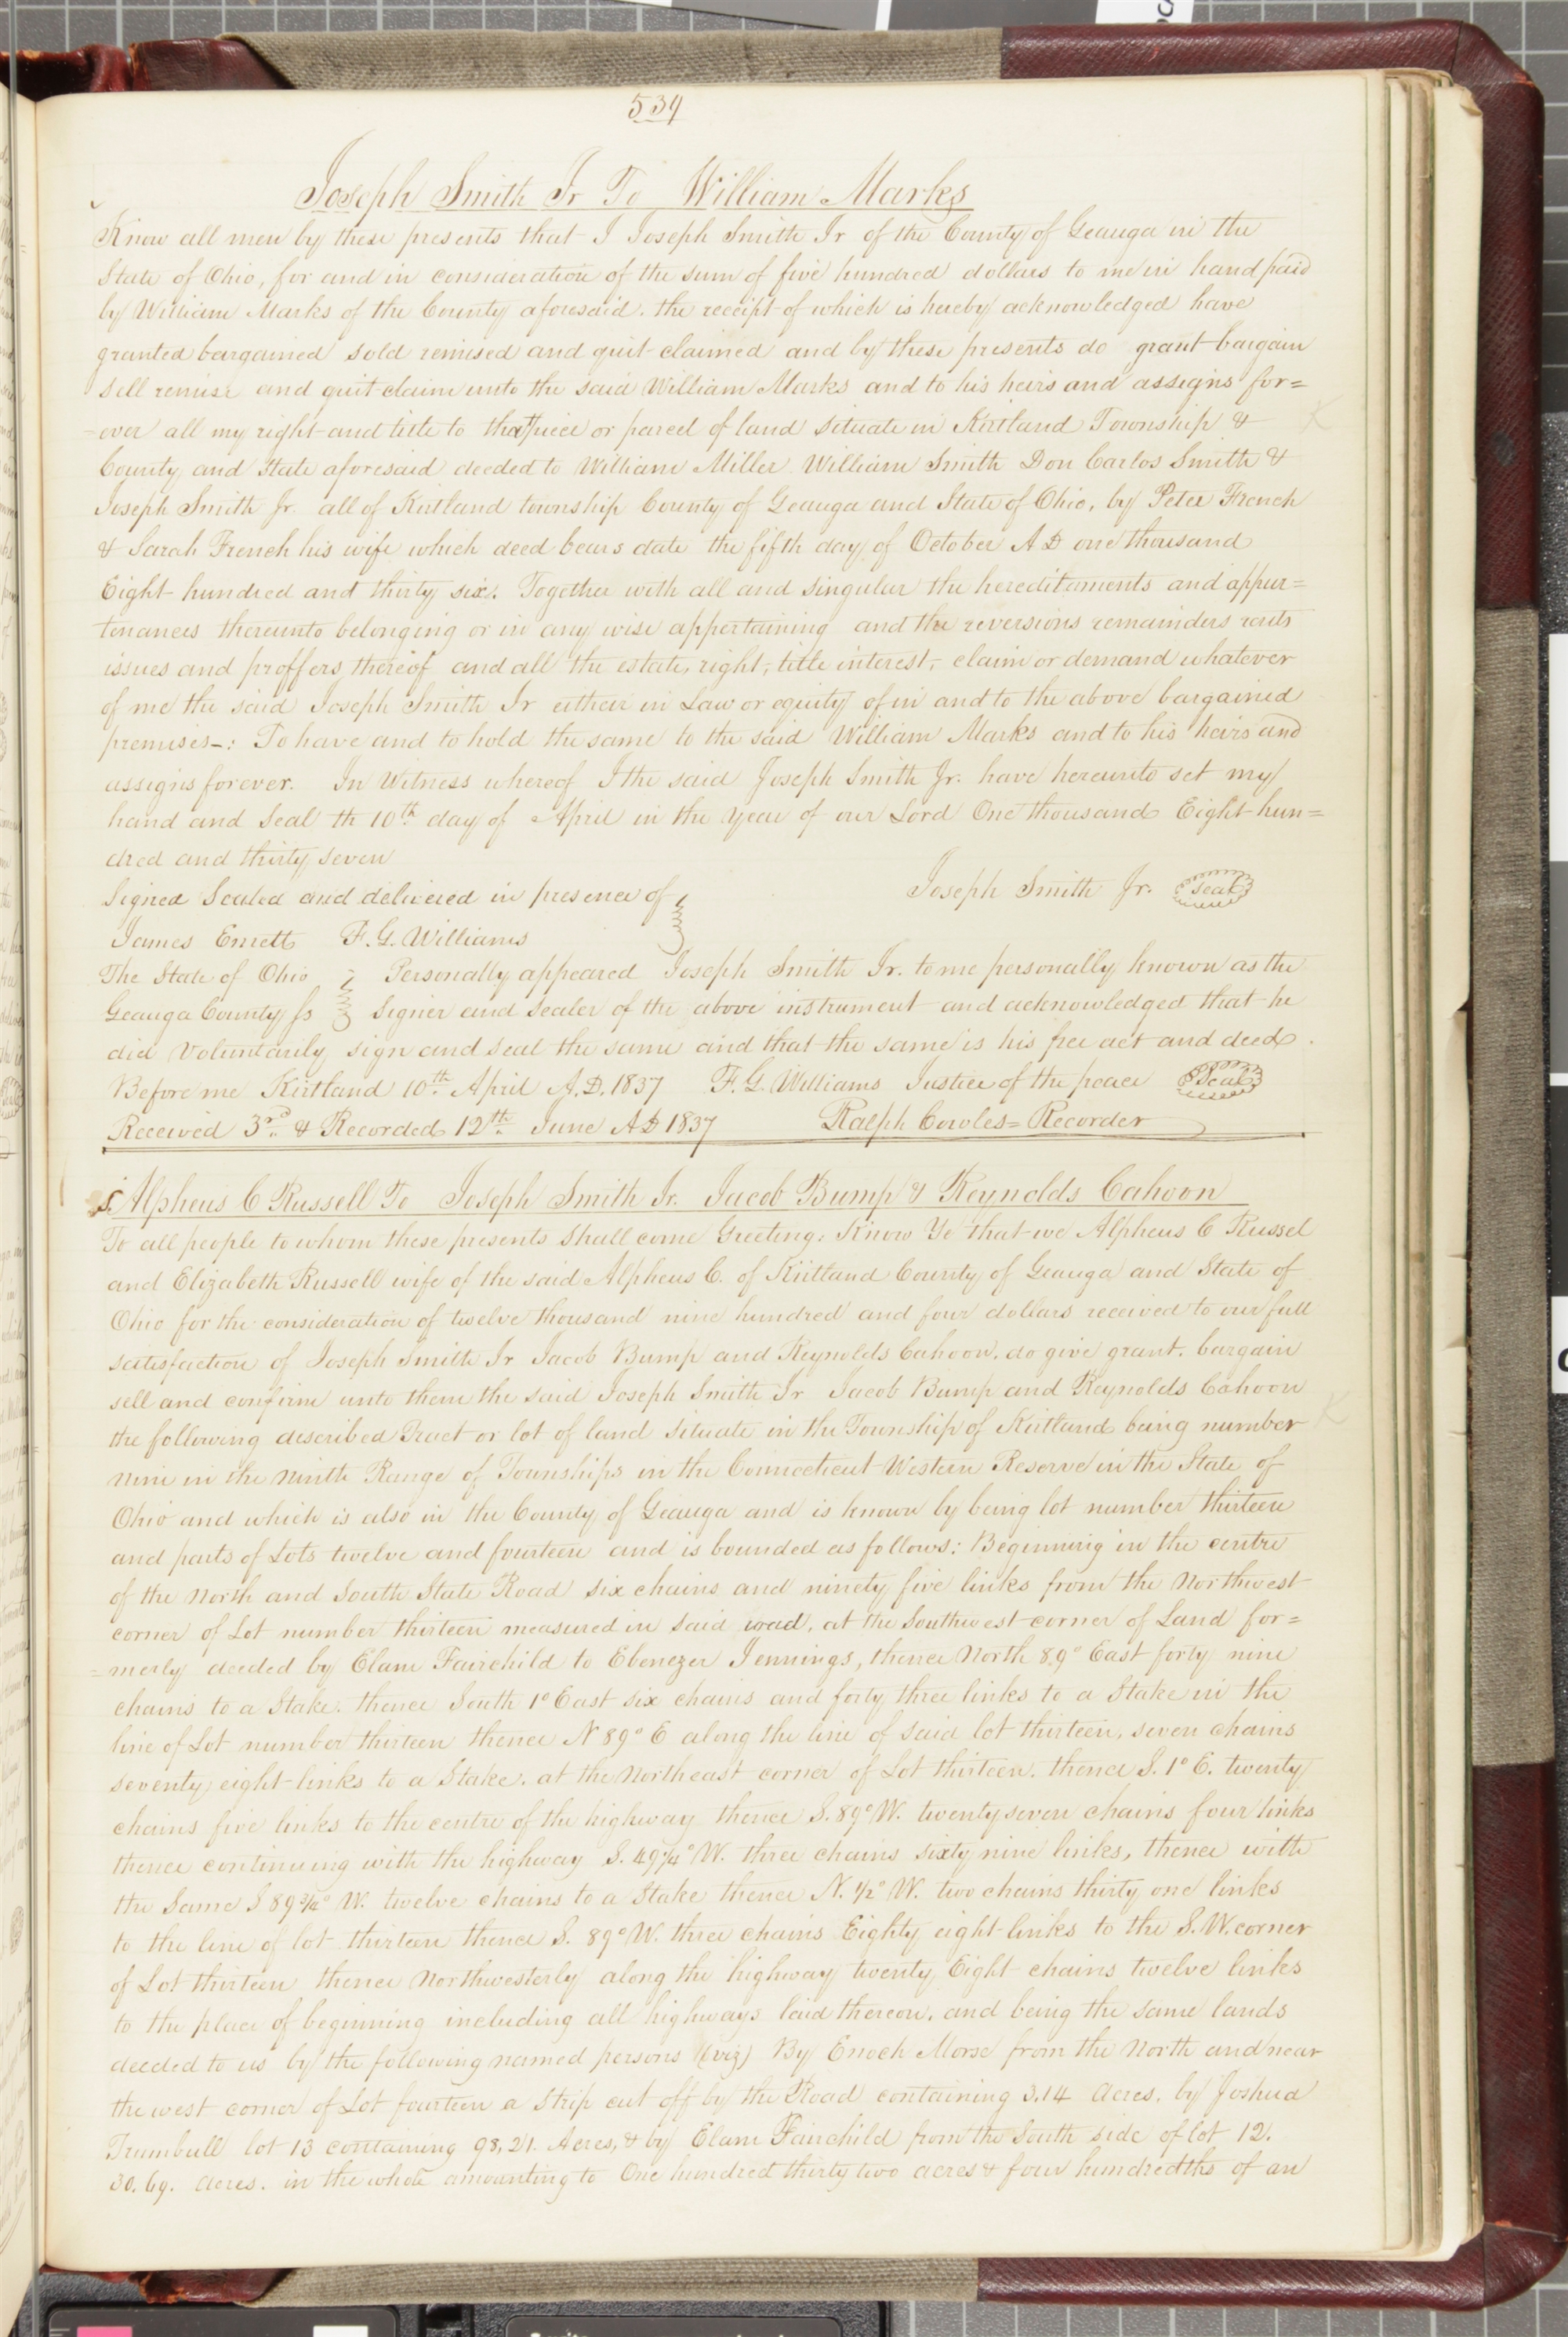 534
Joseph Smith Jr To William Marks
Know all men by these presents that I Joseph Smith Jr of the County of Geauga in the
State of Ohio, for and in consideration of the sum of five hundred dollars to me in hand paid
by William Marks of the County aforesaid. the receipt of which is hereby acknowledged have
granted bargained sold remised and quit claimed and by these presents do grant bargain
sell remise and quit claim unto the said William Marks and to his heirs and assigns for=
-ever all my right and title to that piece or parcel of land situate in Kirtland Township &
County and State aforesaid deeded to William Miller William Smith Don Carlos Smith &
Joseph Smith Jr. all of Kirtland township County of Geauga and State of Ohio, by Peter French
& Sarah French his wife which deed bears date the fifth day of October A D one thousand
Eight hundred and thirty six. Together with all and singular the hereditaments and appur=
tenances thereunto belonging or in any wise appertaining and the reversions remainders rents
issues and proffers thereof and all the estate, right, title interest, claim or demand whatever
of me the said Joseph Smith Jr either in Law or equity of in and to the above bargained
premises-: To have and to hold the same to the said William Marks and to his heirs and
assigns forever. In Witness whereof I the said Joseph Smith Jr. have hereunto set my
hand and seal th 10th day of April in the year of our Lord One thousand Eight hun=
dred and thirty seven
Signed Sealed and delivered in presence of Joseph Smith Jr. Seal
James Emett F. G. Williams
The State of Ohio Personally appeared Joseph Smith Jr. to me personally known as the
Geauga County ss Signer and Sealer of the above instrument and acknowledged that he
did voluntarily sign and seal the same and that the same is his free act and deed.
Before me Kirtland 10th April A.D. 1837 F. G. Williams Justice of the peace Seal
Received 3rd & Recorded 12th June AD 1837 Ralph Cowles= Recorder
Alpheus C Russell To Joseph Smith Jr. Jacob Bump & Reynolds Cahoon
To all people to whom these presents shall come Greeting: Know Ye that we Alpheus C Russel
and Elizabeth Russell wife of the said Alpheus C. of Kirtland County of Geauga and State of
Ohio for the consideration of twelve thousand nine hundred and four dollars received to our full
satisfaction of Joseph Smith Jr Jacob Bump and Reynolds Cahoon, do give grant. bargain
sell and confirm unto them the said Joseph Smith Jr Jacob Bump and Reynolds Cahoon
the following described Tract or lot of land situate in the Township of Kirtland being number
nine in the Ninth Range of Townships in the Connecticut Western Reserve in the State of
Ohio and which is also in the County of Geauga and is known by being lot number thirteen
and parts of Lots twelve and fourteen and is bounded as follows: Beginning in the centre
of the North and South State Road six chains and ninety five links from the Northwest
corner of Lot number thirteen measured in said road, at the Southwest corner of Land for=
=merly deeded by Elam Fairchild to Ebenezer Jennings, thence North 89° East forty nine
chains to a Stake. thence South 1° East six chains and forty three links to a Stake in the
line of Lot number thirteen thence N 89° E along the line of said lot thirteen, seven chains
seventy eight links to a Stake. at the Northeast corner of Lot thirteen. thence S. 1° E. twenty
chains five links to the centre of the highway thence S. 89° W. twenty seven chains four links
thence continuing with the highway S. 49¼° W. three chains sixty nine links, thence with
the Same S 89¾° W. twelve chains to a Stake thence N. ½° W. two chains thirty one links
to the line of lot thirteen thence S. 89° W. three chains Eighty eight links to the S. W. corner
of Lot thirteen thence Northwesterly along the highway twenty Eight chains twelve links
to the place of beginning including all highways laid thereon, and being the same lands
deeded to us by the following named persons (viz) By Enoch Morse from the North and near
the west corner of Lot fourteen a strip cut off by the Road containing 3.14 Acres. by Joshua
Trumbull lot 13 containing 98,21. Acres, & by Elam Fairchild from the South side of lot 12.
30.69. Acres. in the whole amounting to One hundred thirty two acres & four hundredths of an